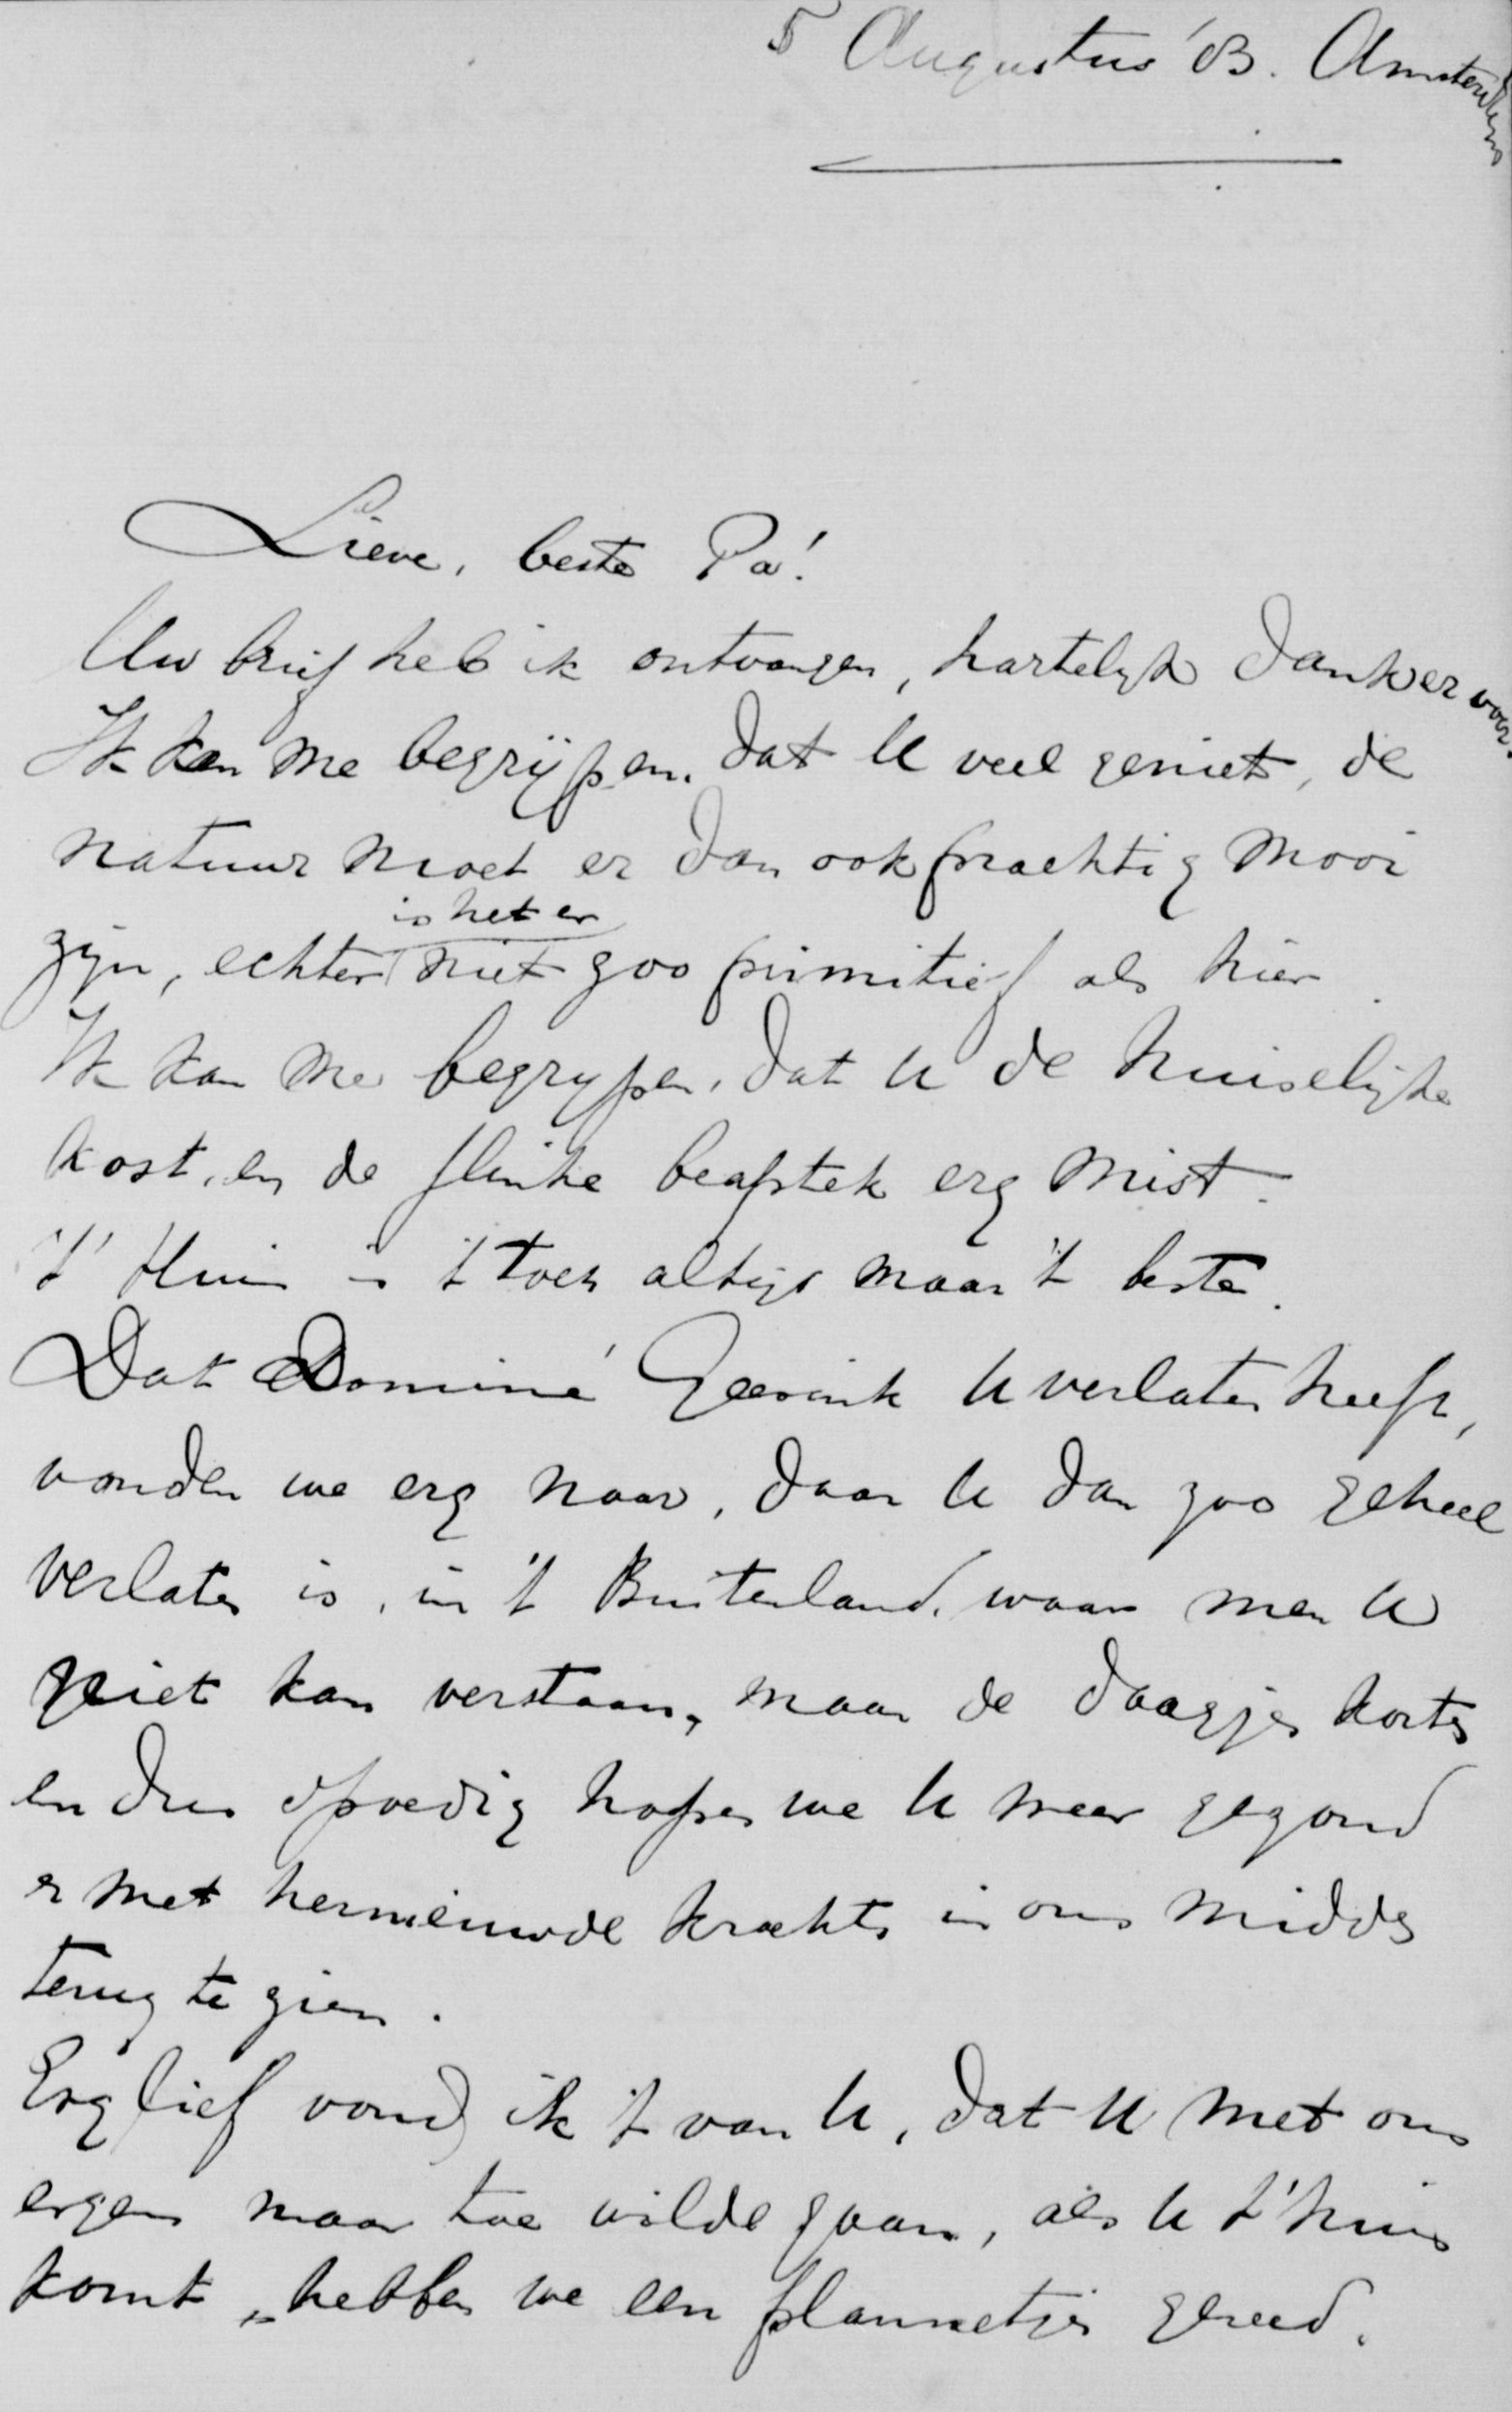 5 Augustus '03. Amsterdam
Lieve, beste Pa!
Uw brief heb ik ontvangen, hartelijk dank er voor.
Ik kan me begrijpen, dat U veel geniet, de
natuur moet er dan ook prachtig mooi
is het er
zijn, echter niet zoo primitief als hier.
Ik kan me begrijpen, dat U de huiselijke
kost, en de flinke beafstek erg mist.
't Huis is 't toch altijd maar 't beste.
Dat Dominé Geerink U verlaten heeft,
vonden we erg naar, daar U dan zoo geheel
verlaten is, in 't Buitenland, waar men U
niet kan verstaan, maar de daagjes korten
en dus spoedig hopen we U weer gezond
en met hernieuwde krachten in ons midden
terug te zien.
Erg lief vond ik 't van U, dat U met ons
ergens naar toe wilde gaan, als U t'huis
komt, hebben we een plannetje gereed.